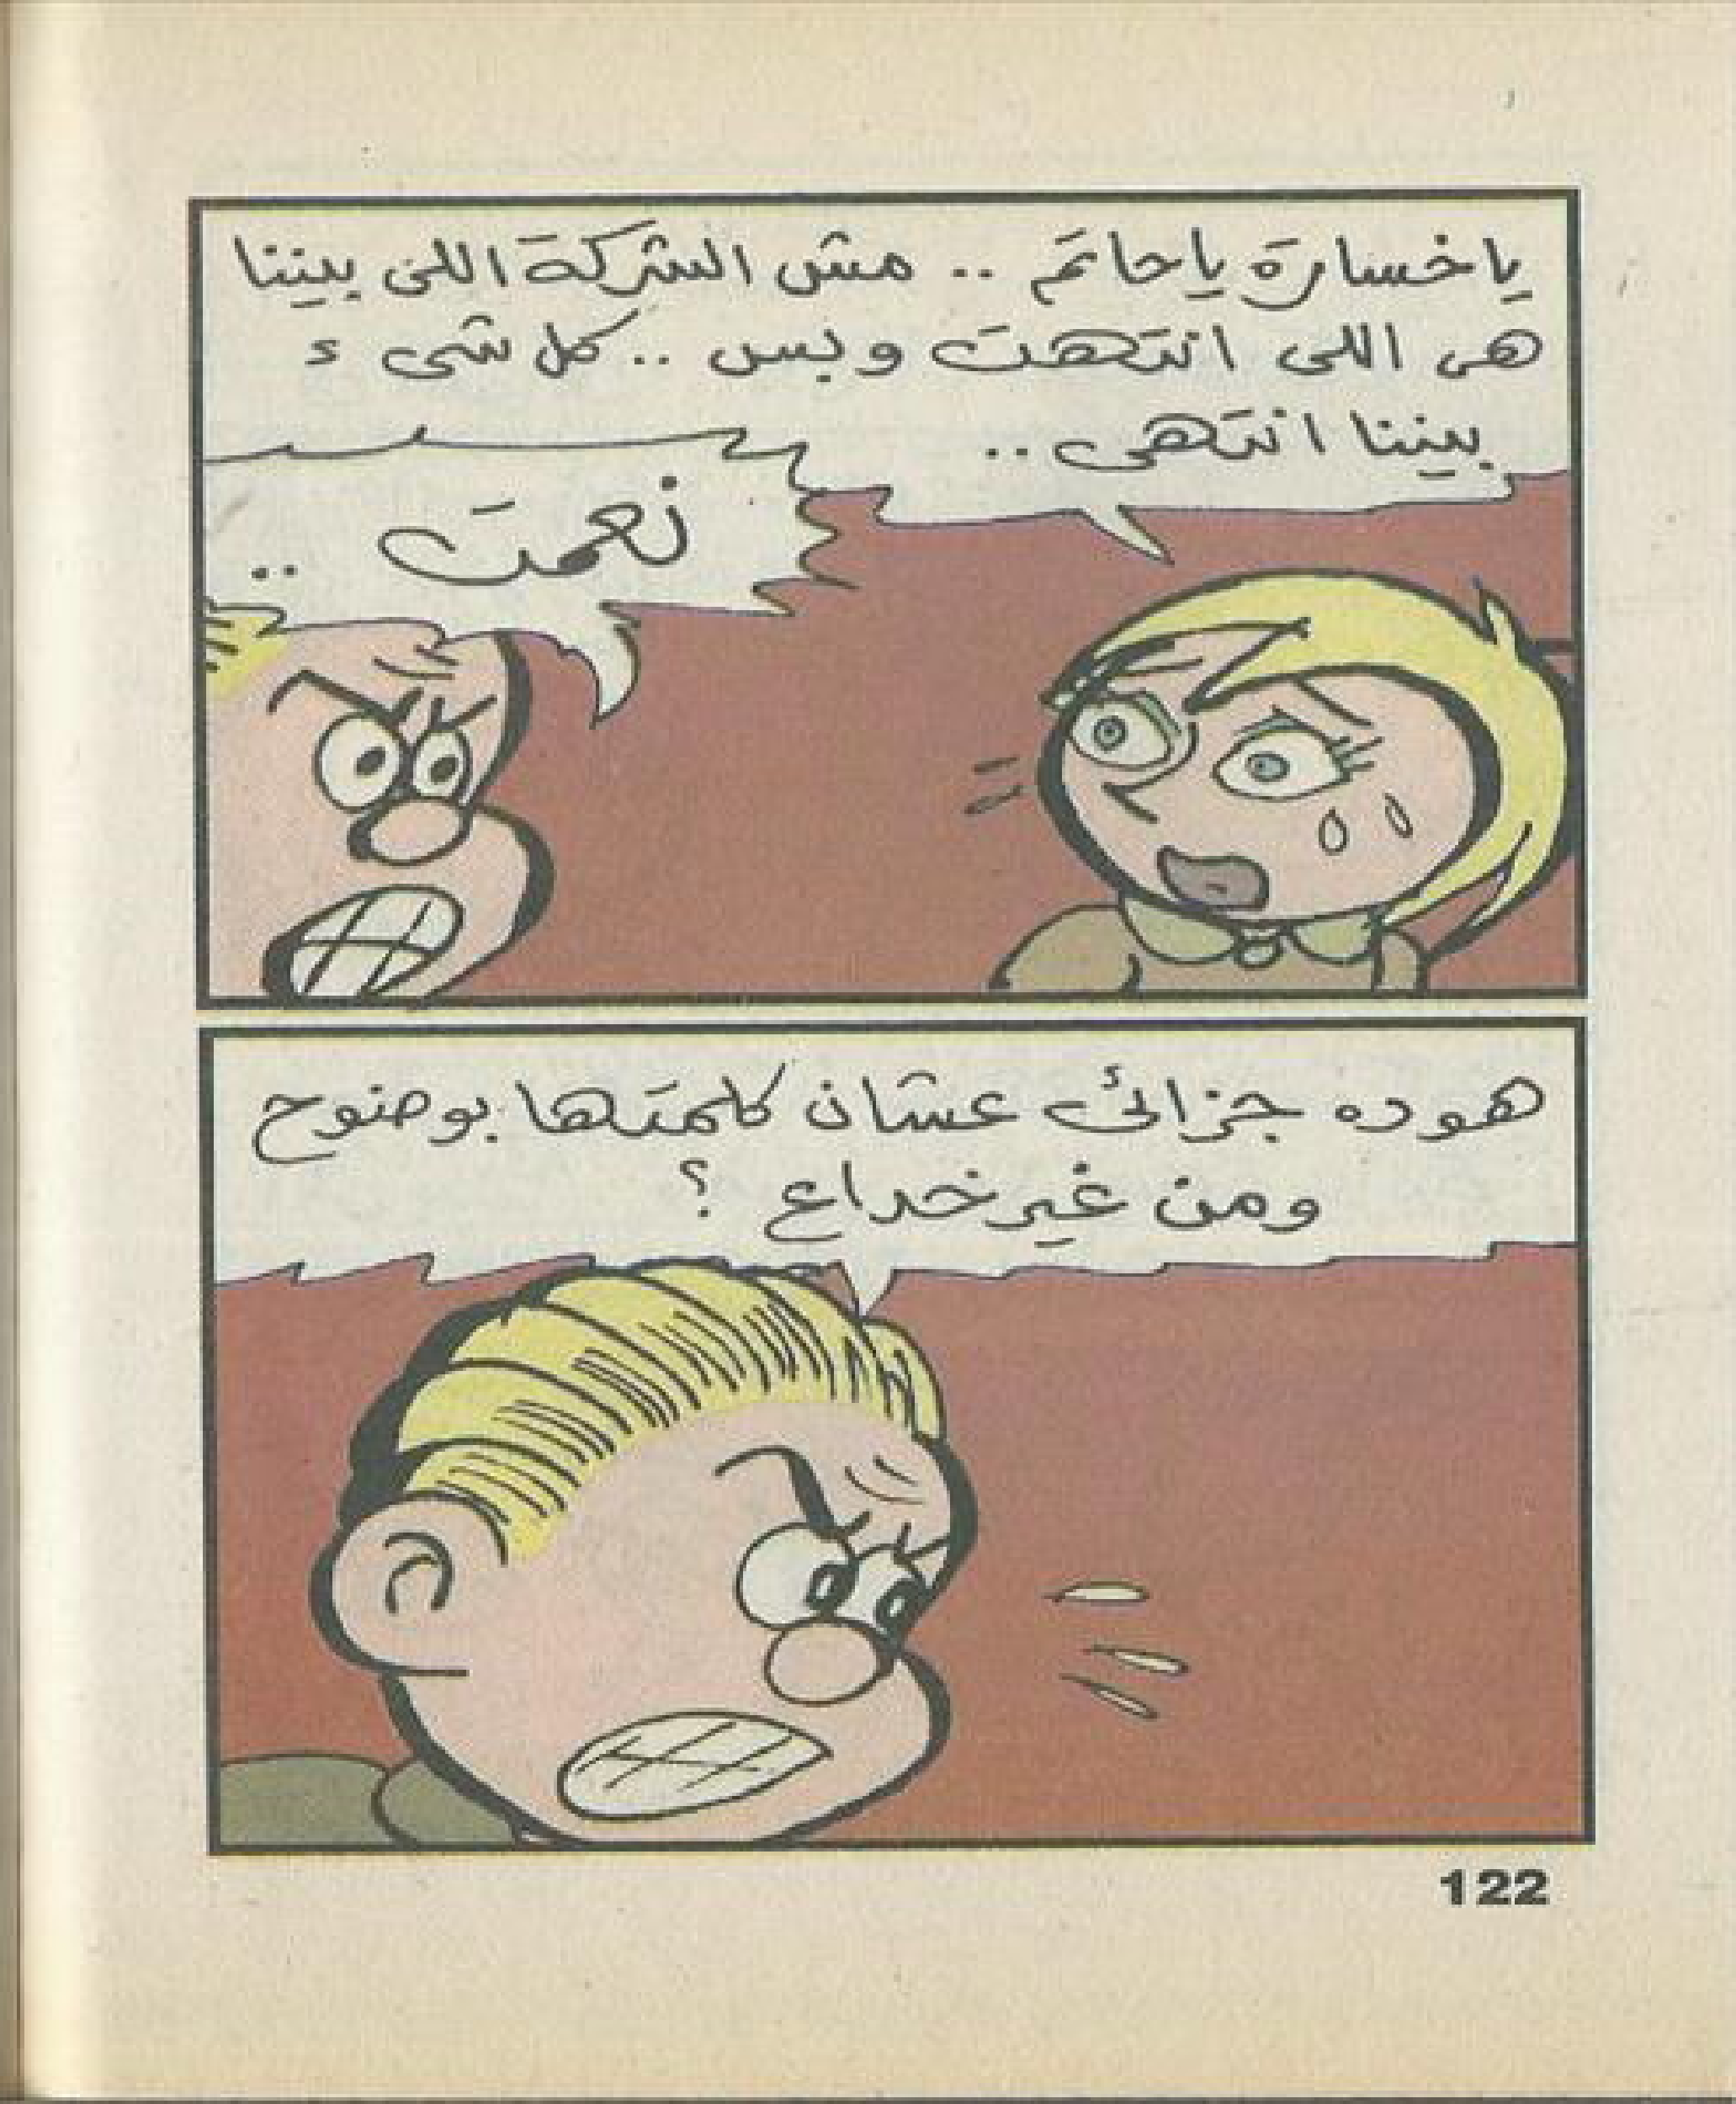 ياخسارة ياحاتم .. مش الشركة اللى بيننا
هى اللى انتهت وبس .. كل شىء
بيننا انتهى ..
نعمت ..
هو ده جزائى عشان كلمتها بوضوح
ومن غير خداع ؟
122